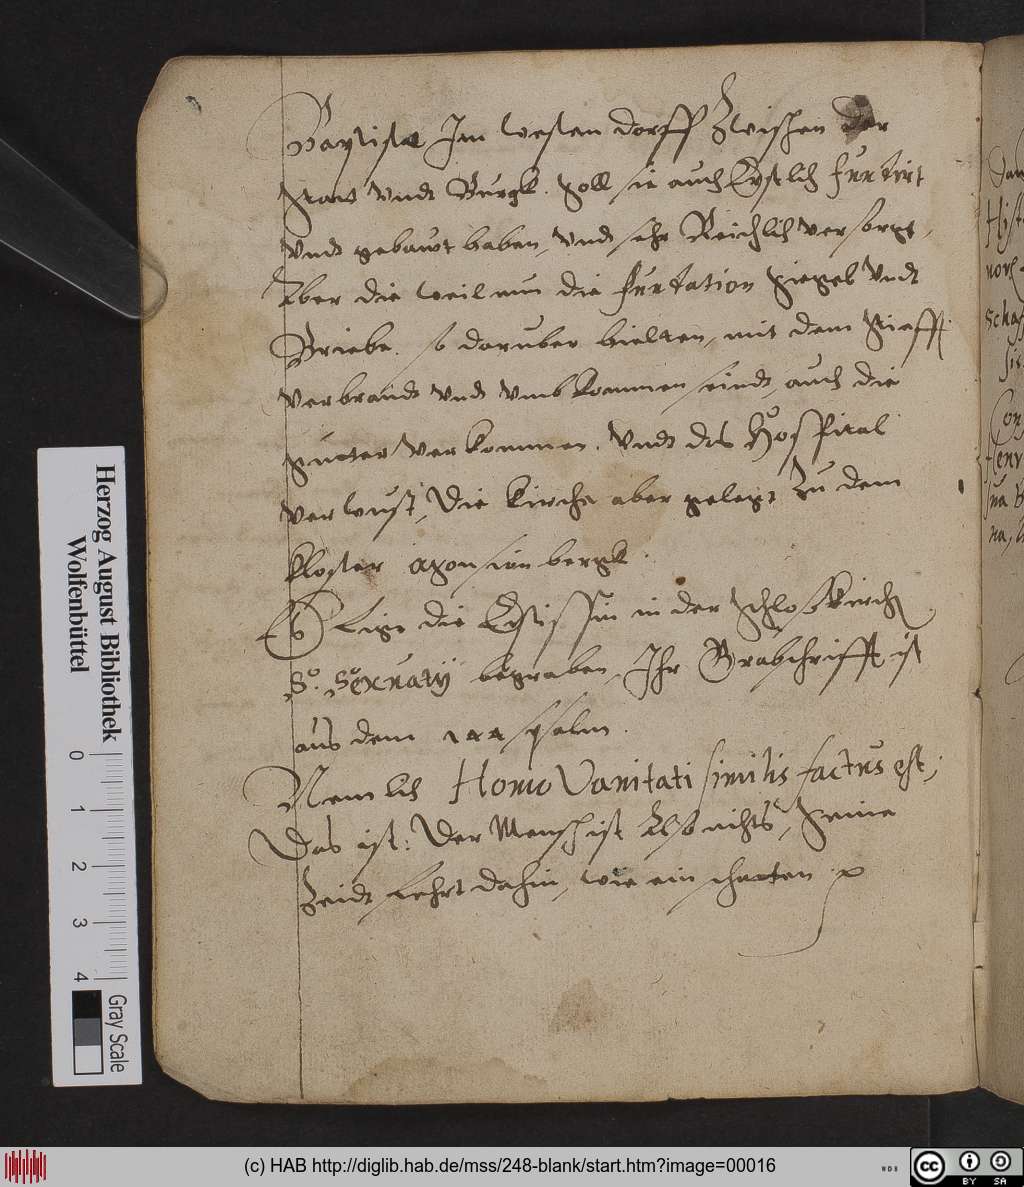 Baptistæ Im westen dorff Zwischen der
Staad Vndt Burgk. Soll sie auch Erstlich funtirt
Vndt gebawt haben, Vnd sehr Reichlich versorgt,
Aber die weil nun die funtation Siegel Vndt
Briebe. so daruber hielten, mit dem Stiefft
verbrandt Vndt Vmbkommen seindt, auch die
gueter verkommen. Vndt das Hospital
verwust, Die Kirche aber gelegt Zu dem
Kloster
Es Ligt die Ebtissin in der Schloßkirch
S. Seruatij begraben, Ihr Grabschrifft ist
aus dem 144 psalm.
Nemlich Homo Vanitati similis factus est,
Das ist: Der Mensch ist Also nichts, Seine
Zeidt fehrt dahin, wie ein schatten
Herzog August Bibliothek
Wolfenbüttel
0 1 2 3 4
Gray Scale
(c) HAB http://diglib.hab.de/mss/248-blank/start.htm?image=00016
WDB
cc BY SA